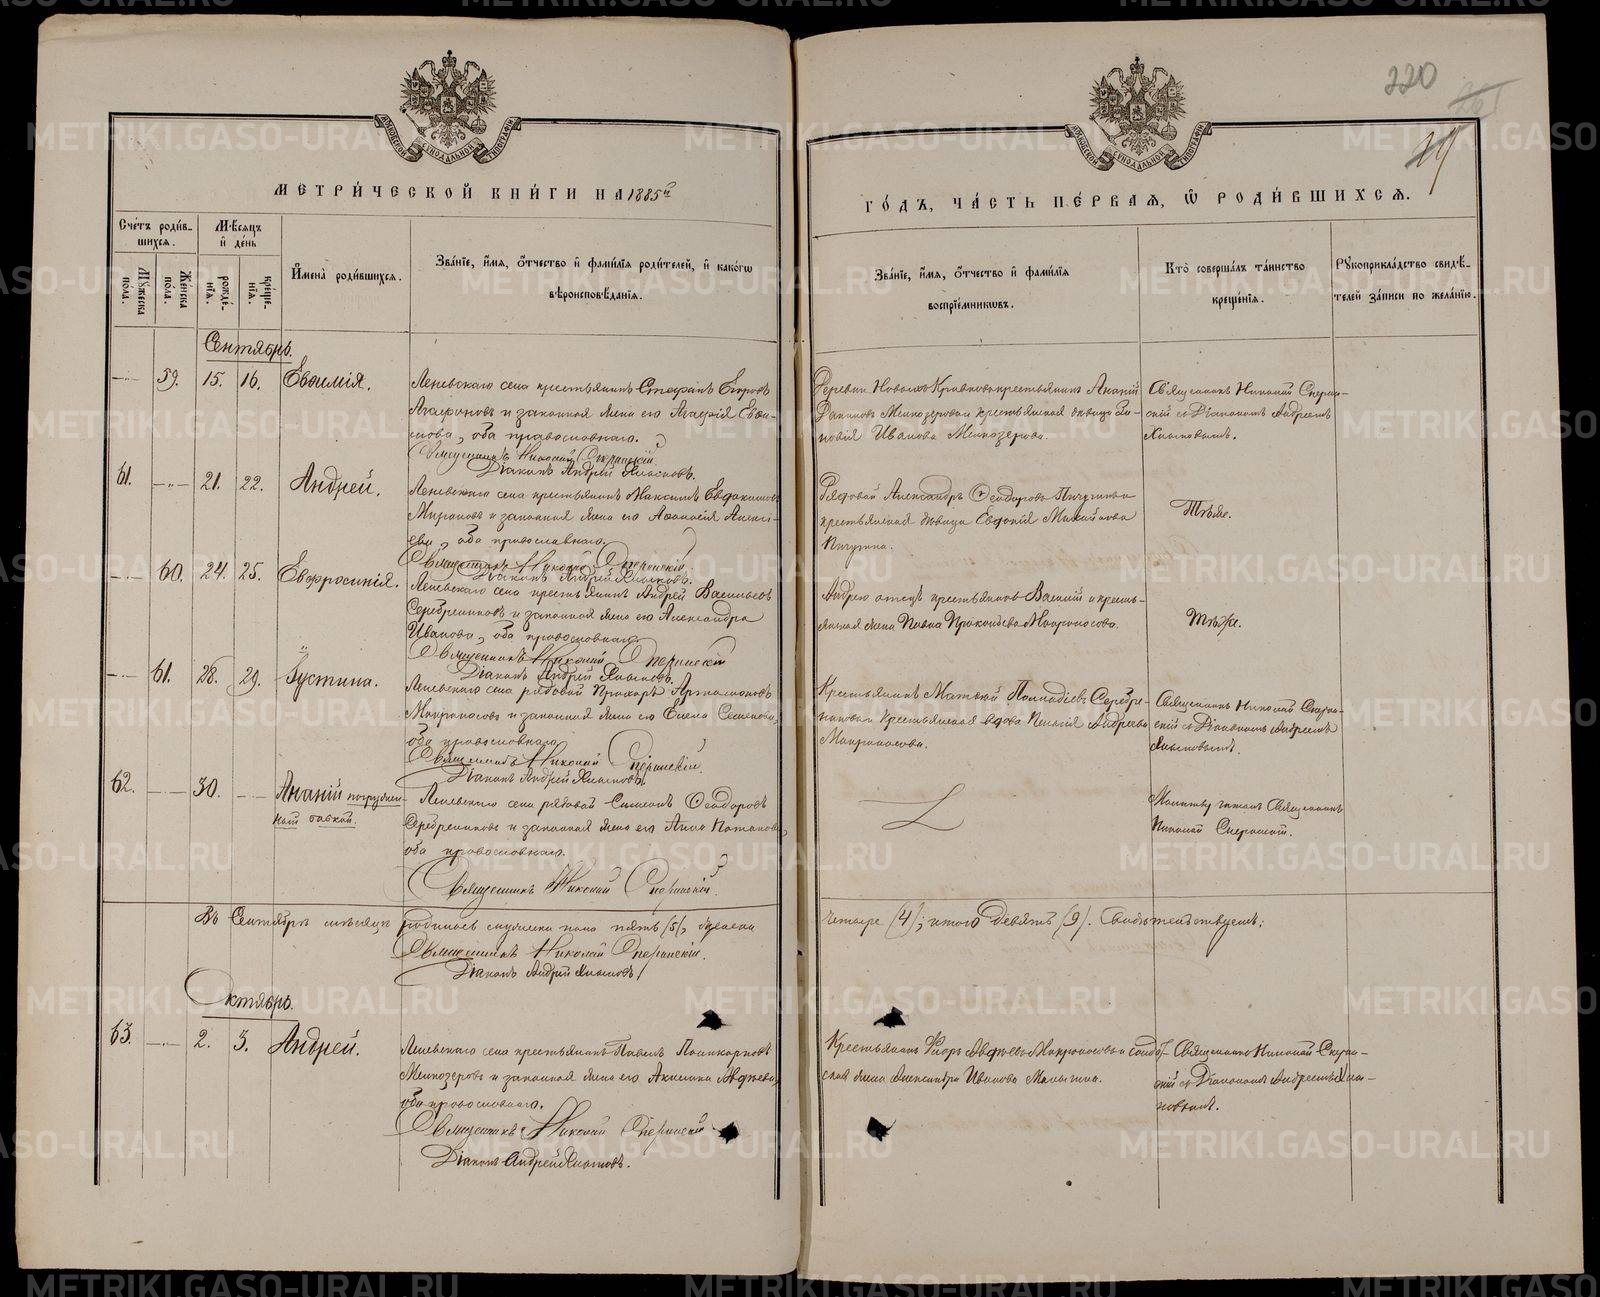 220
МОСКОВСКОЙ СѴНОДАЛЬНОЙ ТИПОГРАФІИ
МЕТРИ́ЧЕСКОЙ КНИ́ГИ НА 1885й
ГО́ДЪ, ЧА́СТЬ ПЕ́РВАЯ, Ѡ҆ РОДИ́ВШИХСЯ.
Сче́тъ роди́в-
шихся.
Мѣ́сяцъ
и҆ де́нь
Мꙋ́жеска
по́ла.
Же́нска
по́ла.
рожде́-
нїя.
креще́-
нїя.
И҆мена̀ роди́вшихся.
Зва́нїе, и҆́мя, ѻ҆́тчество и҆ фами́лїя роди́телей, и҆ како́гѡ
вѣроисповѣ́данїя.
Зва́нїе, и҆́мя, ѻ҆́тчество и҆ фами́лїя
воспрїе́мникѡвъ.
Кто̀ соверша́лъ та́инство
креще́нїя.
Рꙋкоприкла́дство свидѣ́-
телей за́писи по жела́нїю.
Сентябрь.
59. 15. 16. Евѳимія.
Леневскаго села крестьянинъ Стефанъ Егоровъ
Агафоновъ и законная жена его Агафія Евѳи-
мова, оба православнаго.
Священникъ Николай Сперанскій
Діаконъ Андрей
Деревни крестьянинъ Ананій
Мелкозеровъ и крестьянская дѣвица Зи-
новія Иванова Мелкозерова.
Священникъ Николай Сперан-
скій съ Діакономъ Андреемъ
61. 21. 22. Андрей.
Леневскаго села крестьянинъ Максимъ Евдокимовъ
Мироновъ и законная жена его Аѳанасія Алексѣ-
ева, оба православнаго.
Священникъ Николай Сперанскій
Діаконъ Андрей
Рядовой Александръ Ѳеодоровъ Пичугинъ и
крестьянская дѣвица Евдокія Михайлова
Пичугина.
Тѣже.
60. 24. 25. Евфросинія.
Леневскаго села крестьянинъ Андрей Васильевъ
Серебренниковъ и законная жена его Александра
Иванова, оба православнаго.
Священникъ Николай Сперанскій
Діаконъ Андрей
Андрею отецъ крестьянинъ Василій и кресть-
янская жена Павла Прокопьева Макроносова.
Тѣже.
61. 28. 29. Іустина.
Леневскаго села рядовой Прохоръ Артамоновъ
Макроносовъ и законная жена его Елена Семенова,
оба православнаго.
Священникъ Николай Сперанскій.
Діаконъ Андрей
Крестьянинъ Матвей Серебре-
никовъ и крестьянская вдова Пелагія Андреева
Макроносова.
Священникъ Николай Сперан-
скій съ Діакономъ Андреемъ
62. 30. Ананій погружен-
ный бабкой.
Леневскаго села рядовой Симеонъ Ѳеодоровъ
Серебренниковъ и законная жена его Анна Потапова,
оба православнаго.
Священникъ Николай Сперанскій.
Молитву читалъ Священникъ
Николай Сперанскій.
Въ Сентябрѣ мѣсяцѣ родилось мужеска пола пять (5), женска
четыре (4); итого девять (9). Свидѣтельствуемъ:
Священникъ Николай Сперанскій.
Діаконъ Андрей
Октябрь.
63. 2. 3. Андрей.
Леневскаго села крестьянинъ Павелъ Поликарповъ
Мелкозеровъ и законная жена его Акилина Авдѣева,
оба православнаго.
Священникъ Николай Сперанскій
Діаконъ Андрей
Крестьянинъ Егоръ Авдѣевъ Макроносовъ и солдат-
ская жена Александра Иванова Малыгина.
Священникъ Николай Сперан-
скій съ Діакономъ Андреемъ
METRIKI.GASO-URAL.RU